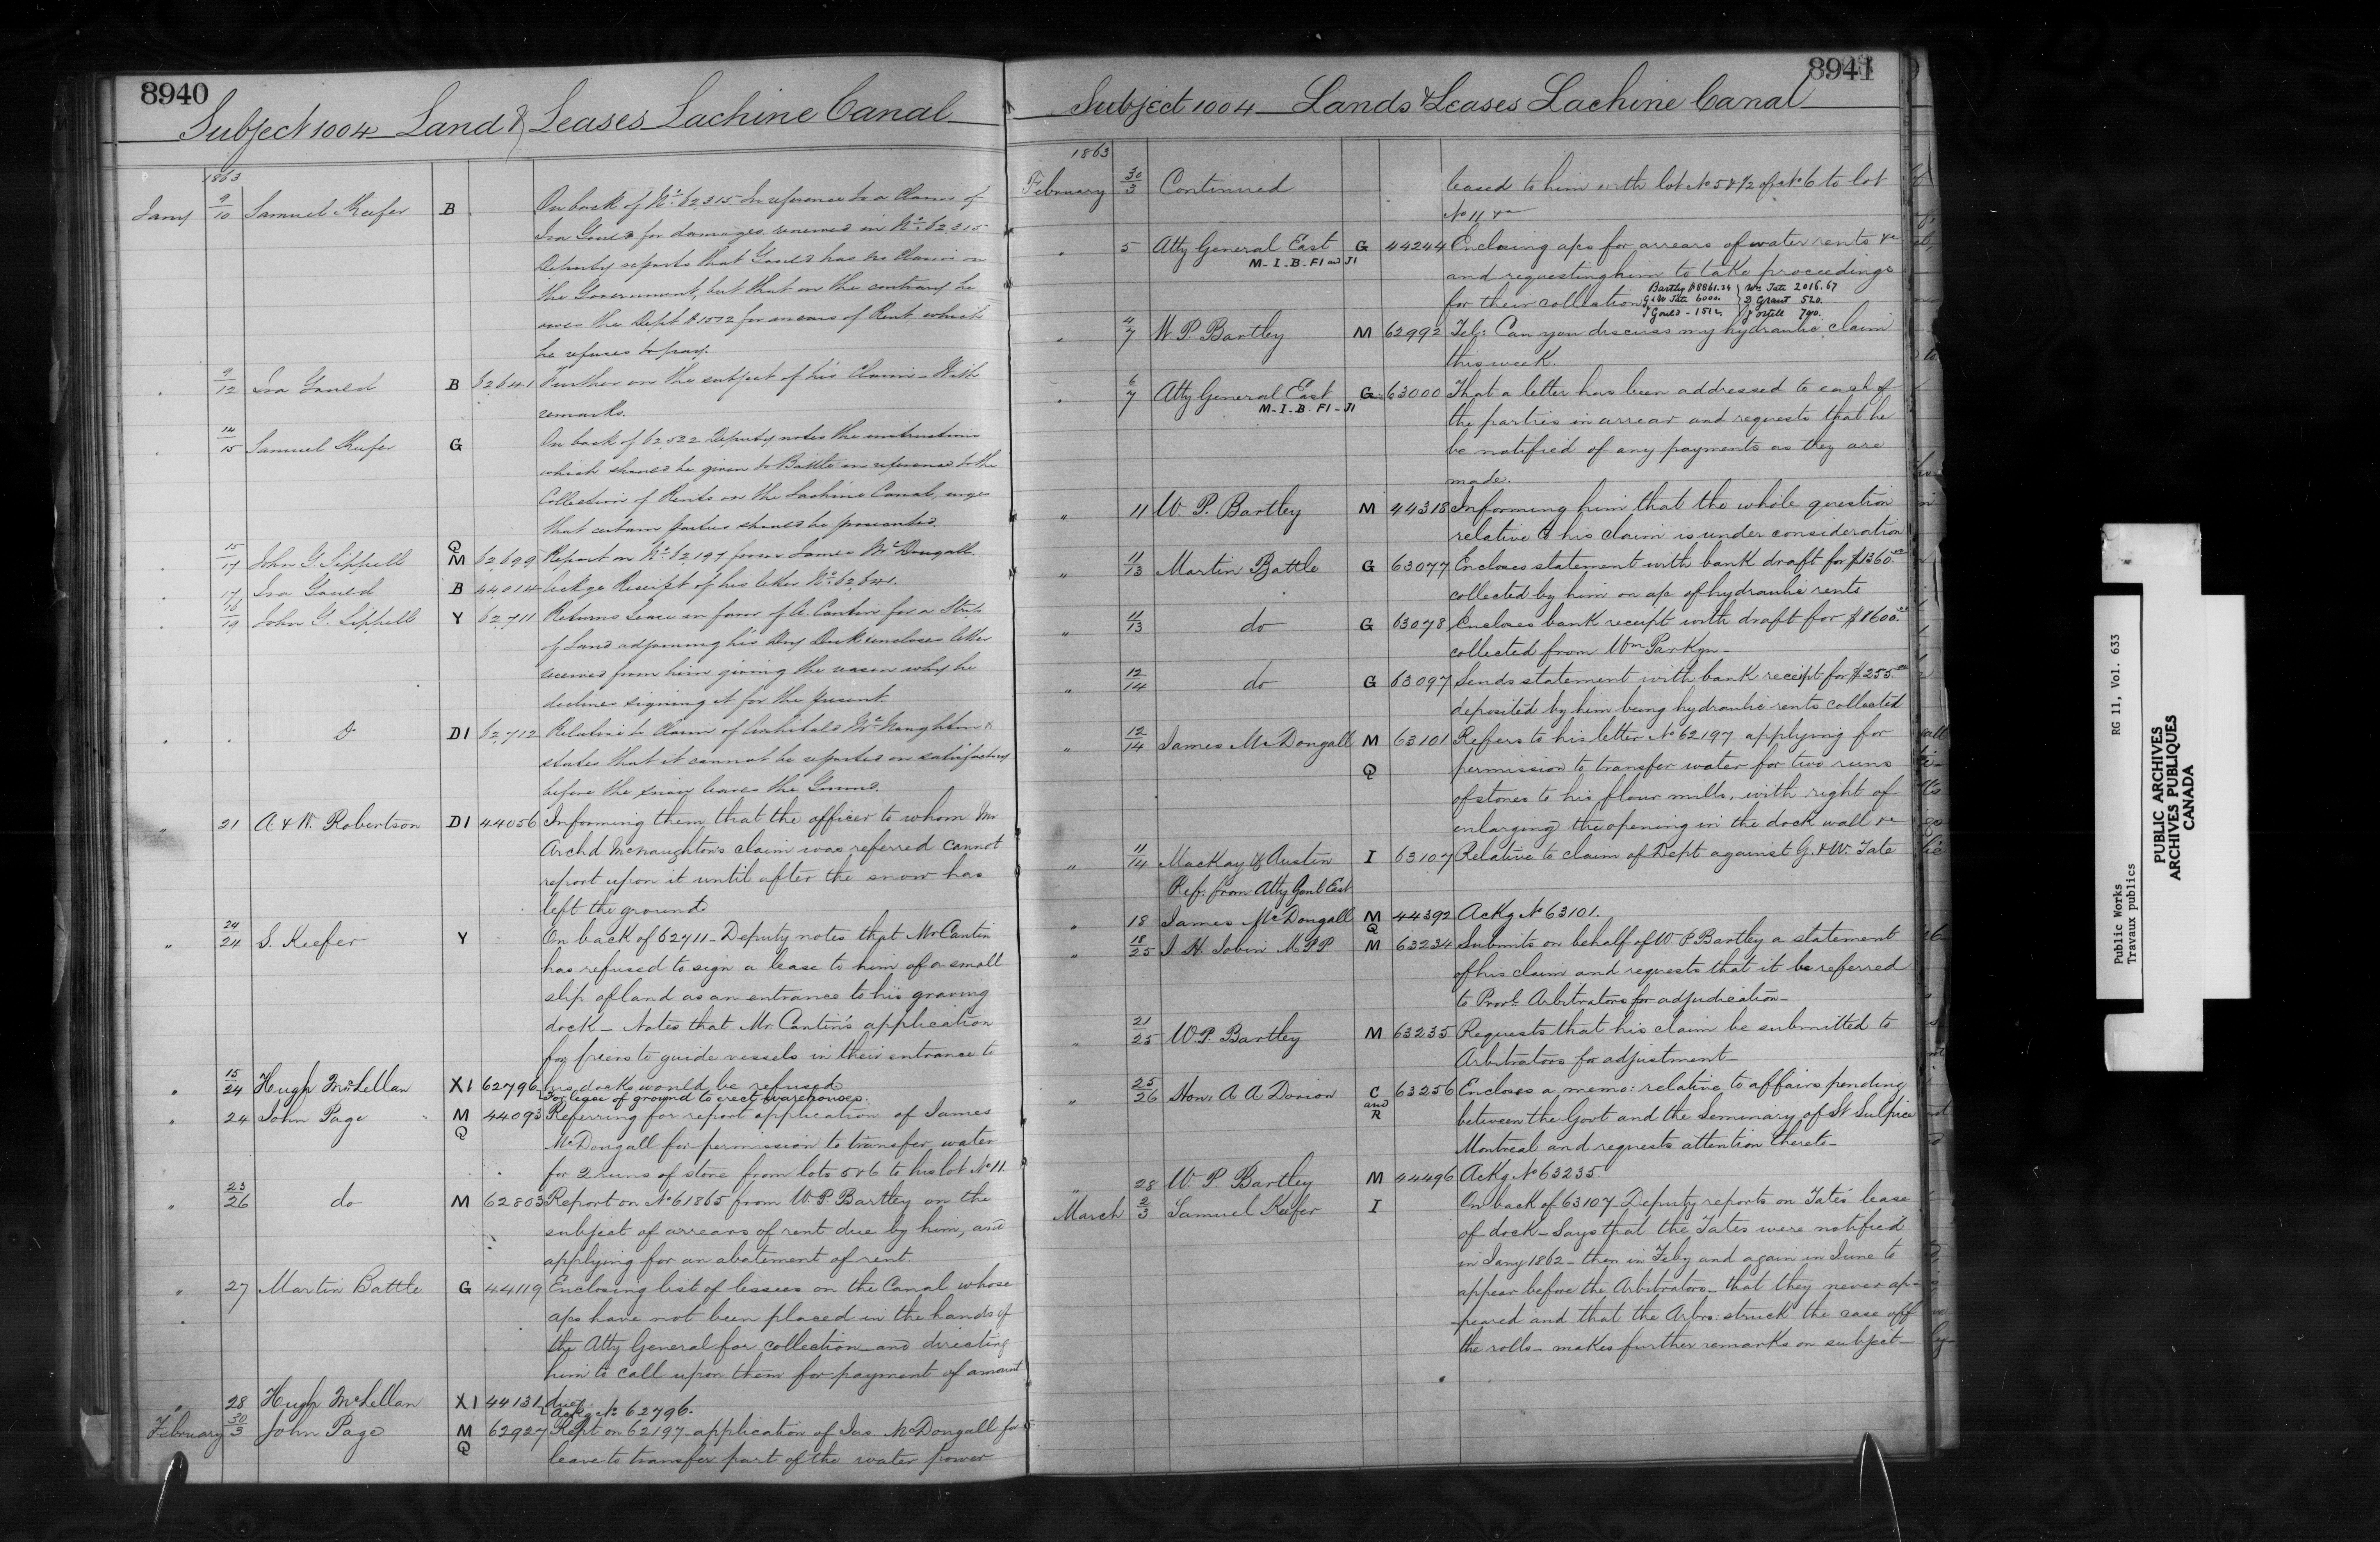 8940
Subject 1004 Land & Leases Lachine Canal
1863
Jany 9/10 Samuel Keefer B On back of No. 62315 In reference to a Claim of
Ira Gould for damages renewed in No. 62315
Deputy reports that Gould has no Claim on
the Government, but that on the contrary he
owes the Dept $1512 for arrears of Rent which
he refuses to pay.
" 9/12 Ira Gould B 62641 Further on the subject of his Claim - With
remarks.
" 14/15 Samuel Keefer G On back of 62522 Deputy notes the instructions
which should be given to Battle in reference to the
Collection of Rents on the Lachine Canal, urges
that certain parties should be prosecuted.
" 15/17 John G. Sippell Q M 62699 Report on No. 62197 from James McDougall
17 Ira Gould B 44014 Ackge Receipt of his letter No. 62641.
" 16/19 John G. Sippell Y 62711 Returns Lease in favor of A. Cantin for a Strip
of Land adjoining his Dry Dock encloses letter
received from him giving the reason why he
declines signing it for the present.
" " Do D1 62712 Relative to Claim of Archibald McNaughton &
states that it cannot be reported on satisfactory
before the snow leaves the Ground.
" 21 A & W. Robertson D1 44056 Informing them that the officer to whom Mr
Archd McNaughton's claim was referred cannot
report upon it until after the snow has
left the ground
" 24/24 S. Keefer Y On back of 62711 - Deputy notes that Mr Cantin
has refused to sign a lease to him of a small
slip of land as an entrance to his graving
dock - Notes that Mr. Cantin's application
for piers to guide vessels in their entrance to
his docks would be refused
" 15/24 Hugh McLellan X1 62796 For lease of ground to erect warehouses.
" 24 John Page M Q 44093 Referring for report application of James
McDougall for permission to transfer water
for 2 runs of stone from lots 5 & 6 to his lot No 11
" 23/26 do M 62803 Report on No 61865 from W. P. Bartley on the
subject of arrears of rent due by him, and
applying for an abatement of rent.
" 27 Martin Battle G 44119 Enclosing list of lessees on the Canal whose
a/cs have not been placed in the hands of
the Atty General for collection and directing
him to call upon them for payment of amount
due
" 28 Hugh McLellan X1 44131 Ackg No 62796.
February 30/3 John Page M Q 62927 Rept on 62197 - application of Jas. McDougall for
leave to transfer part of the water power
8941
Subject 1004 Lands & Leases Lachine Canal
1863
February 30/3 Continued leased to him with lot No 5 & 1/2 of No 6 to lot
No 11 &c
" 5 Atty General East G 44244 Enclosing a/cs for arrears of water rents &c
M - I - B - F1 and J1
and requesting him to take proceedings
for their collection
Bartly $8861.24 Wm Tate 2016.67
G & W Tate 6000. D Grant 520.
I Gould - 1512 J Ostell 790.
" 4/7 W. P. Bartley M 62992 Tel: Can you discuss my hydraulic claim
this week.
" 6/7 Atty General East G 63000 That a letter has been addressed to each of
M - I - B - F1 - J1
the parties in arrear and requests that he
be notified of any payments as they are
made.
" 11 W. P. Bartley M 44318 Informing him that the whole question
relative to his claim is under consideration
" 11/13 Martin Battle G 63077 Encloses statement with bank draft for $1360.
collected by him on a/c of hydraulic rents
" 11/13 do G 63078 Encloses bank receipt with draft for $1600.
collected from Wm Parkyn -
" 12/14 do G 63097 Sends statement with bank receipt for $255.
deposited by him being hydraulic rents collected
" 12/14 James McDougall M Q 63101 Refers to his letter No 62197 applying for
permission to transfer water for two runs
of stones to his flour mills, with right of
enlarging the opening in the dock wall &c
" 11/14 Mackay & Austin I 63107 Relative to claim of Dept against G. & W. Tate
Ref. from Atty Genl East
" 18 James McDougall M Q 44392 Ackg No 63101.
" 18/25 J. H. Jobin M.P.P. M 63234 Submits on behalf of W P. Bartley a statement
of his claim and requests that it be referred
to Provl. Arbitrators for adjudication -
" 21/25 W. P. Bartley M 63235 Requests that his claim be submitted to
Arbitrators for adjustment -
" 25/26 Hon: A A Dorion C and R 63256 Encloses a memo: relative to affairs pending
between the Govt and the Seminary of St Sulpice
Montreal and requests attention thereto -
" 28 W. P. Bartley M 44496 Ackg No 63235
March 2/3 Samuel Keefer I On back of 63107 - Deputy reports on Tates' lease
of dock - Says that the Tates were notified
in Jany 1862 - then in Feby and again in June to
appear before the Arbitrators - that they never ap-
peared and that the Arbrs: struck the case off
the rolls - makes further remarks on subject -
Public Works RG 11, Vol. 633
Travaux publics
PUBLIC ARCHIVES
ARCHIVES PUBLIQUES
CANADA